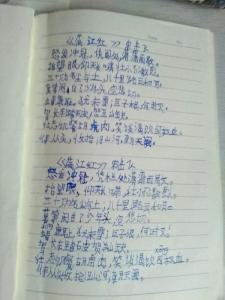 《满江红》岳飞
怒发冲冠,凭阑处、潇潇雨歇。
抬望眼,仰天长啸,壮怀激烈。
三十功名尘与土,八千里路云和月。
莫等闲,白了少年头,空悲切。
靖康耻,犹未雪;臣子恨,何时灭。
驾长车
壮志饥餐胡虏肉,笑谈渴饮匈奴血。
待从头、收拾旧山河,朝天阙。
《满江红》岳飞
怒发冲冠,凭栏处潇潇雨歇。
抬望眼,仰天长啸,壮怀激烈。
三十功名尘与土,八千里路云和月。
莫等闲白了少年头,空悲切。
靖康耻,犹未雪;臣子恨,何时灭。
驾长车踏破贺兰山缺。
xiōng
壮志饥餐胡虏肉,笑谈渴饮匈奴血。
待从头收拾旧山河,朝天阙。